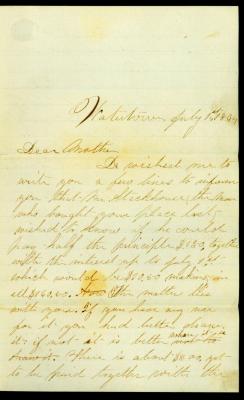 Watertown July 1st
Dear Mother
D. wished me to
write you a few lines to inform
you that Mr. the man
who bought your place last,
wished to know if he could
pay half the principle $150, together
with the interest up to July 1st
which would be making in
all The matter lies
with you. If you have any use
for it you had better
it; if not it is better where it is
There is about yet
to be paid together with the